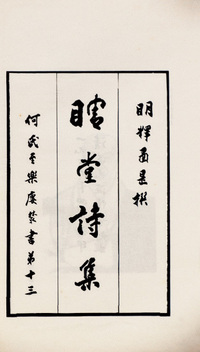 明釋函昰撰
瞎堂詩集
何氏至樂廎叢書第十三